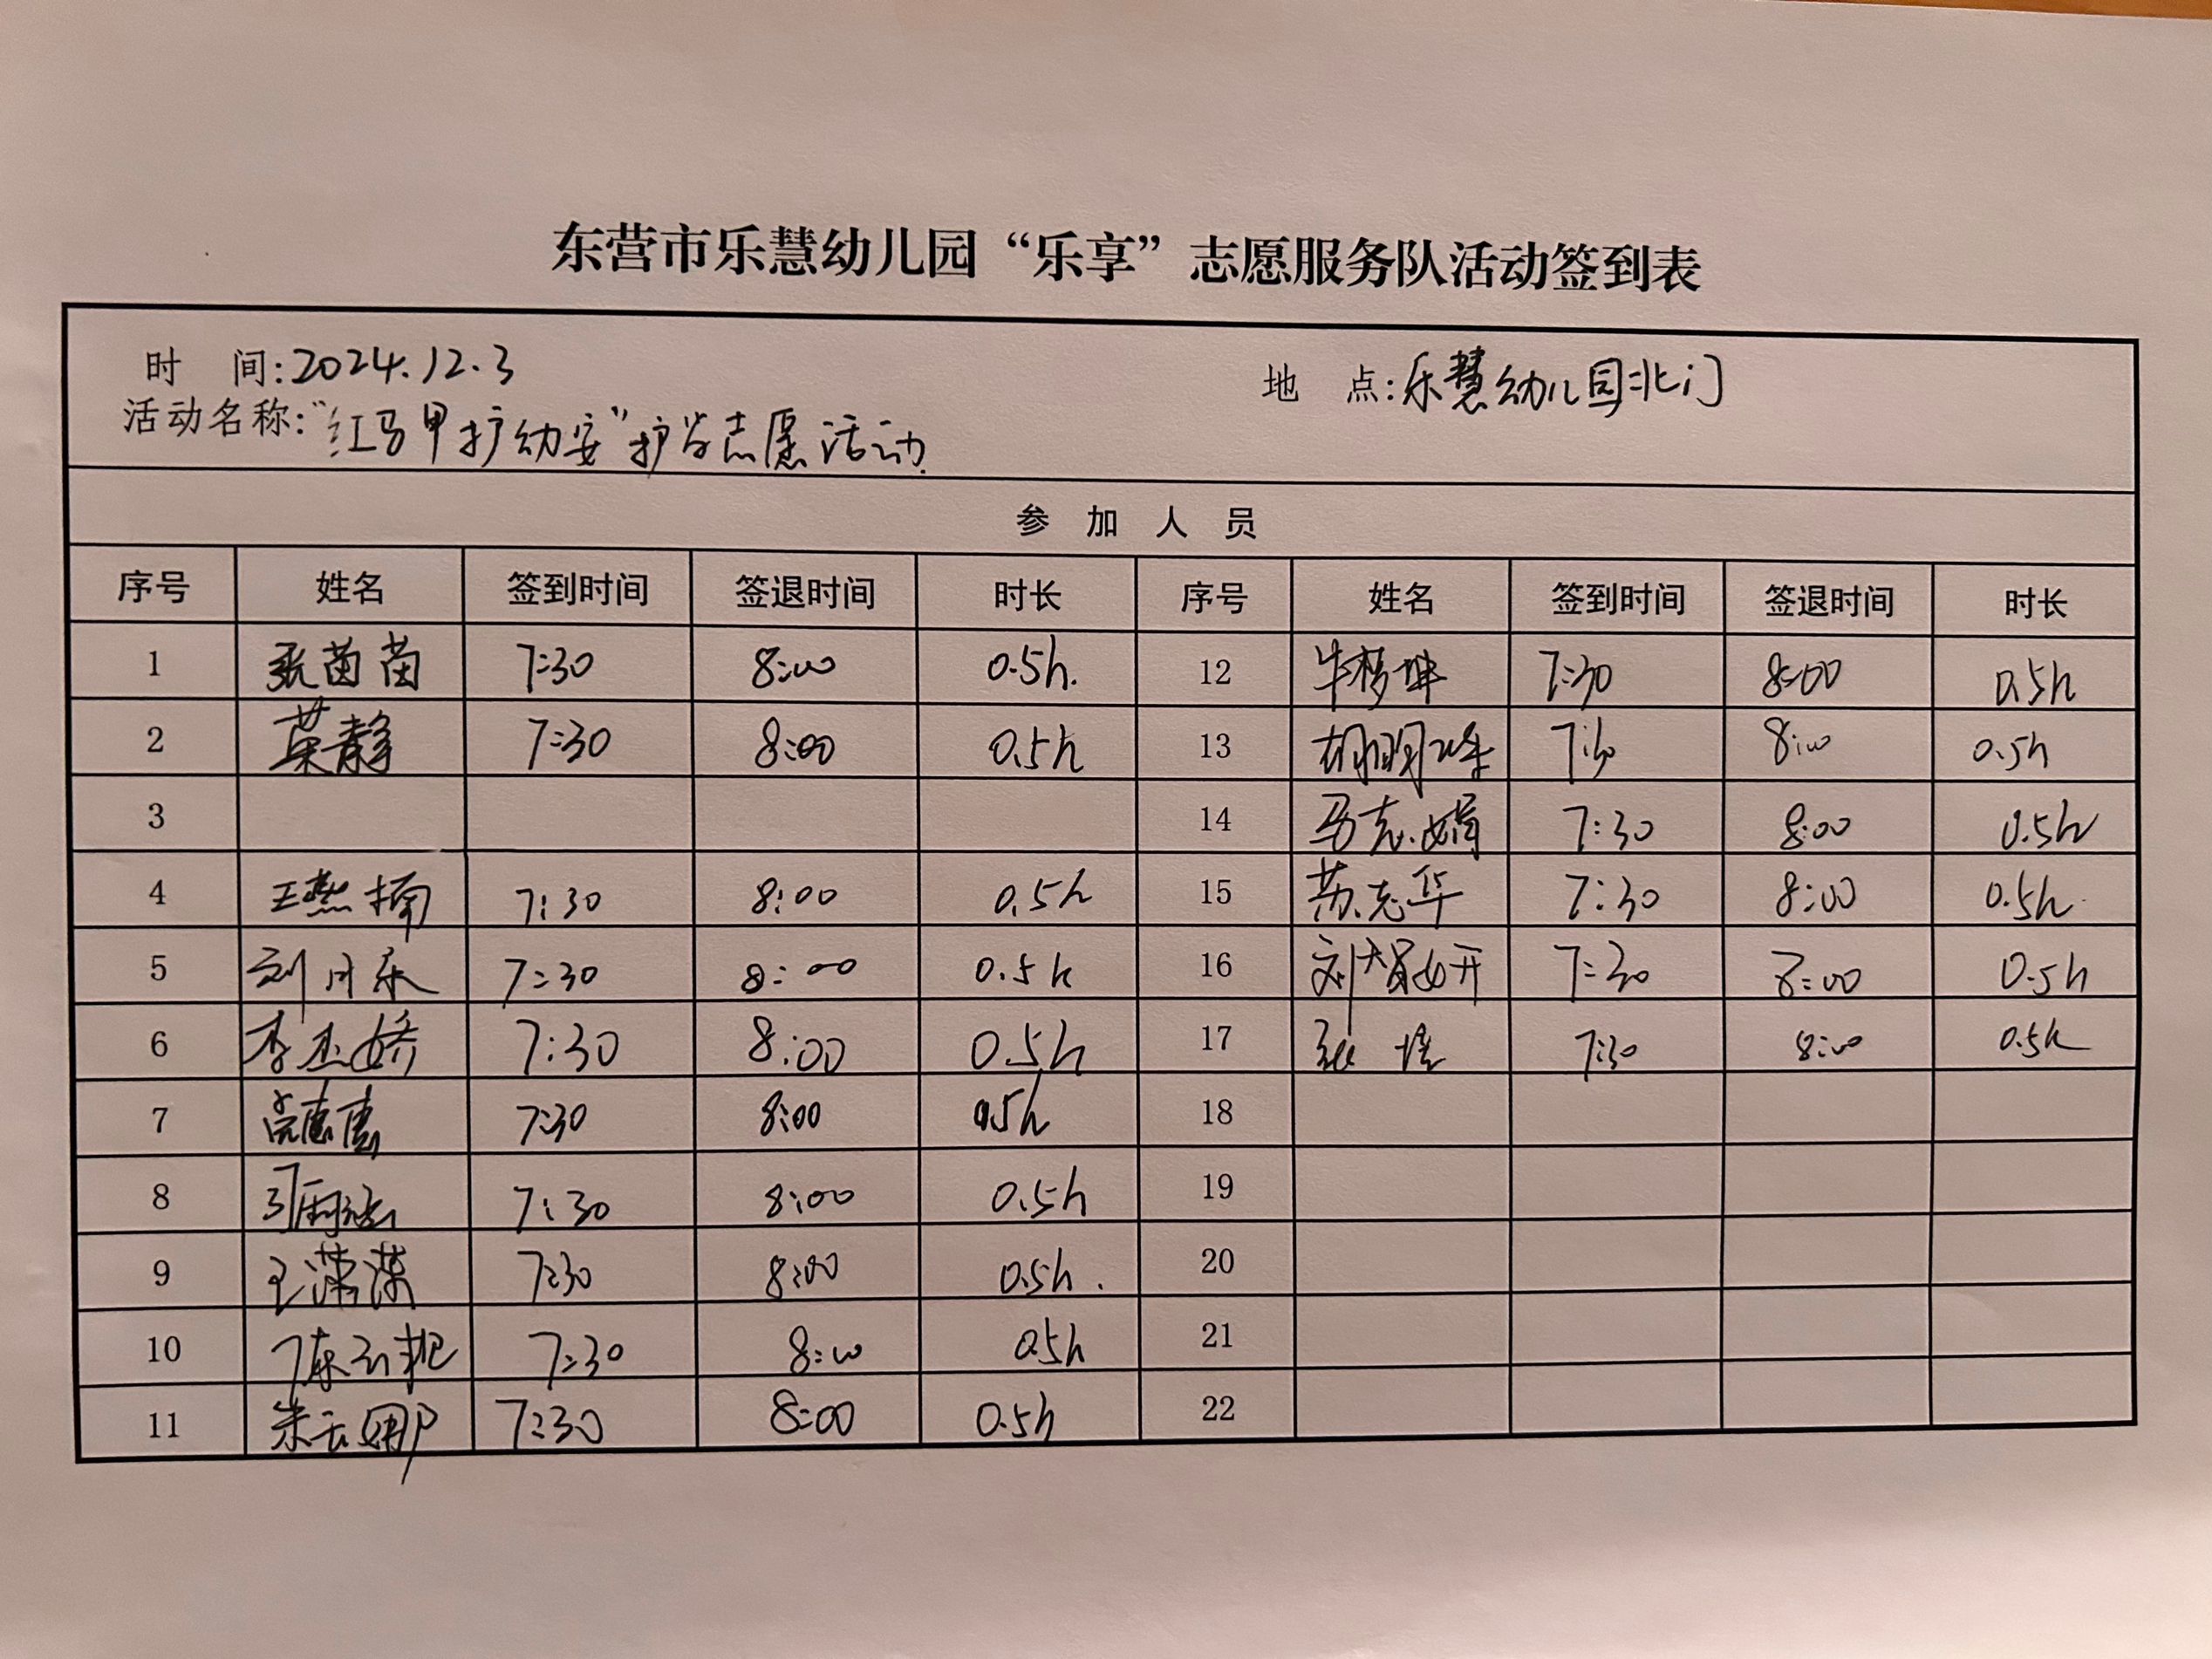 东营市乐慧幼儿园“乐享”志愿服务队活动签到表
时 间:2024.12.3 地 点:乐慧幼儿园北门
活动名称:“红马甲护幼安”护学志愿活动
参 加 人 员
序号 姓名 签到时间 签退时间 时长 序号 姓名 签到时间 签退时间 时长
1 张苗苗 7:30 8:00 0.5h. 12 牛梦坤 7:30 8:00 0.5h
2 静 7:30 8:00 0.5h 13 胡明 7:30 8:00 0.5h
3 14 马志娟 7:30 8:00 0.5h
4 王燕楠 7:30 8:00 0.5h 15 苏志华 7:30 8:00 0.5h
5 刘月 7:30 8:00 0.5h 16 刘贺妍 7:30 8:00 0.5h
6 李娇 7:30 8:00 0.5h 17 张 7:30 8:00 0.5h
7 惠惠 7:30 8:00 0.5h 18
8 7:30 8:00 0.5h 19
9 王潇潇 7:30 8:00 0.5h. 20
10 7:30 8:00 0.5h 21
11 朱云娜 7:30 8:00 0.5h 22